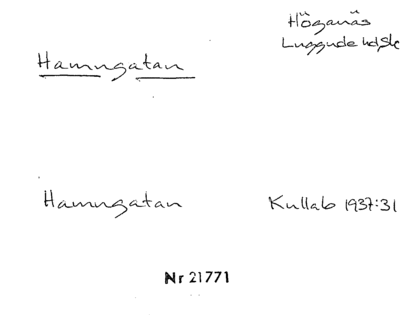 Höganäs
Luggude hd, Sk
Hamngatan
Hamngatan Kullab 1937:31
Nr 21771